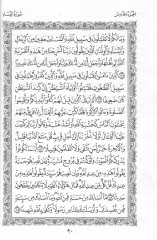 الجزء الخامس
سورة النساء
وَمَا لَكُمْ لَا تُقَاتِلُونَ فِي سَبِيلِ اللَّهِ وَالْمُسْتَضْعَفِينَ مِنَ الرِّجَالِ
وَالنِّسَاءِ وَالْوِلْدَانِ الَّذِينَ يَقُولُونَ رَبَّنَا أَخْرِجْنَا مِنْ هَٰذِهِ الْقَرْيَةِ
الظَّالِمِ أَهْلُهَا وَاجْعَل لَّنَا مِن لَّدُنكَ وَلِيًّا وَاجْعَل لَّنَا مِن لَّدُنكَ
نَصِيرًا ٧٥ الَّذِينَ آمَنُوا يُقَاتِلُونَ فِي سَبِيلِ اللَّهِ وَالَّذِينَ كَفَرُوا
يُقَاتِلُونَ فِي سَبِيلِ الطَّاغُوتِ فَقَاتِلُوا أَوْلِيَاءَ الشَّيْطَانِ إِنَّ كَيْدَ
الشَّيْطَانِ كَانَ ضَعِيفًا ٧٦ أَلَمْ تَرَ إِلَى الَّذِينَ قِيلَ لَهُمْ كُفُّوا أَيْدِيَكُمْ
وَأَقِيمُوا الصَّلَاةَ وَآتُوا الزَّكَاةَ فَلَمَّا كُتِبَ عَلَيْهِمُ الْقِتَالُ إِذَا فَرِيقٌ
مِّنْهُمْ يَخْشَوْنَ النَّاسَ كَخَشْيَةِ اللَّهِ أَوْ أَشَدَّ خَشْيَةً وَقَالُوا رَبَّنَا لِمَ
كَتَبْتَ عَلَيْنَا الْقِتَالَ لَوْلَا أَخَّرْتَنَا إِلَىٰ أَجَلٍ قَرِيبٍ قُلْ مَتَاعُ الدُّنْيَا
قَلِيلٌ وَالْآخِرَةُ خَيْرٌ لِّمَنِ اتَّقَىٰ وَلَا تُظْلَمُونَ فَتِيلًا ٧٧ أَيْنَمَا
تَكُونُوا يُدْرِككُّمُ الْمَوْتُ وَلَوْ كُنتُمْ فِي بُرُوجٍ مُّشَيَّدَةٍ وَإِن تُصِبْهُمْ
حَسَنَةٌ يَقُولُوا هَٰذِهِ مِنْ عِندِ اللَّهِ وَإِن تُصِبْهُمْ سَيِّئَةٌ يَقُولُوا هَٰذِهِ
مِنْ عِندِكَ قُلْ كُلٌّ مِّنْ عِندِ اللَّهِ فَمَالِ هَٰؤُلَاءِ الْقَوْمِ لَا يَكَادُونَ
يَفْقَهُونَ حَدِيثًا ٧٨ مَّا أَصَابَكَ مِنْ حَسَنَةٍ فَمِنَ اللَّهِ وَمَا أَصَابَكَ
مِن سَيِّئَةٍ فَمِن نَّفْسِكَ وَأَرْسَلْنَاكَ لِلنَّاسِ رَسُولًا وَكَفَىٰ بِاللَّهِ شَهِيدًا ٧٩
٩٠